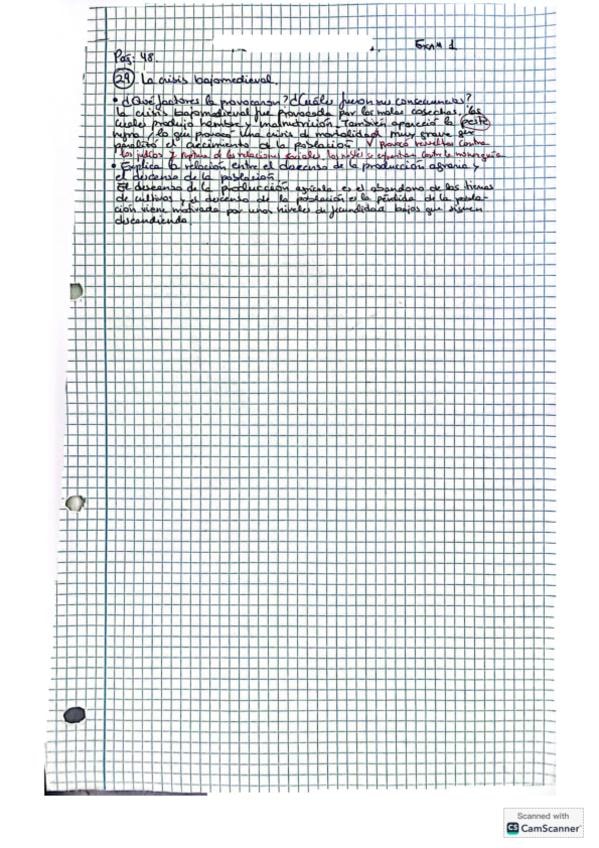 Exam 1
Pág: 48.
29 La crisis bajomedieval.
• ¿Qué factores la provocaron? ¿Cuáles fueron sus consecuencias?
La crisis bajomedieval fue provocada por las malas cosechas, las
cuales produjo hambre y malnutrición. También apareció la peste
negra, lo que provocó una crisis de mortalidad muy grave que
paralizó el crecimiento de la población. Y provocó revueltas contra
los judíos y ruptura de las relaciones sociales, los nobles se enfrentan contra la monarquía
• Explica la relación entre el descenso de la producción agraria y
el descenso de la población.
El descenso de la producción agrícola es el abandono de las tierras
de cultivos y el descenso de la población es la pérdida de la pobla-
ción viene motivada por unos niveles de fecundidad bajos que siguen
descendiendo.
Scanned with
CS CamScanner